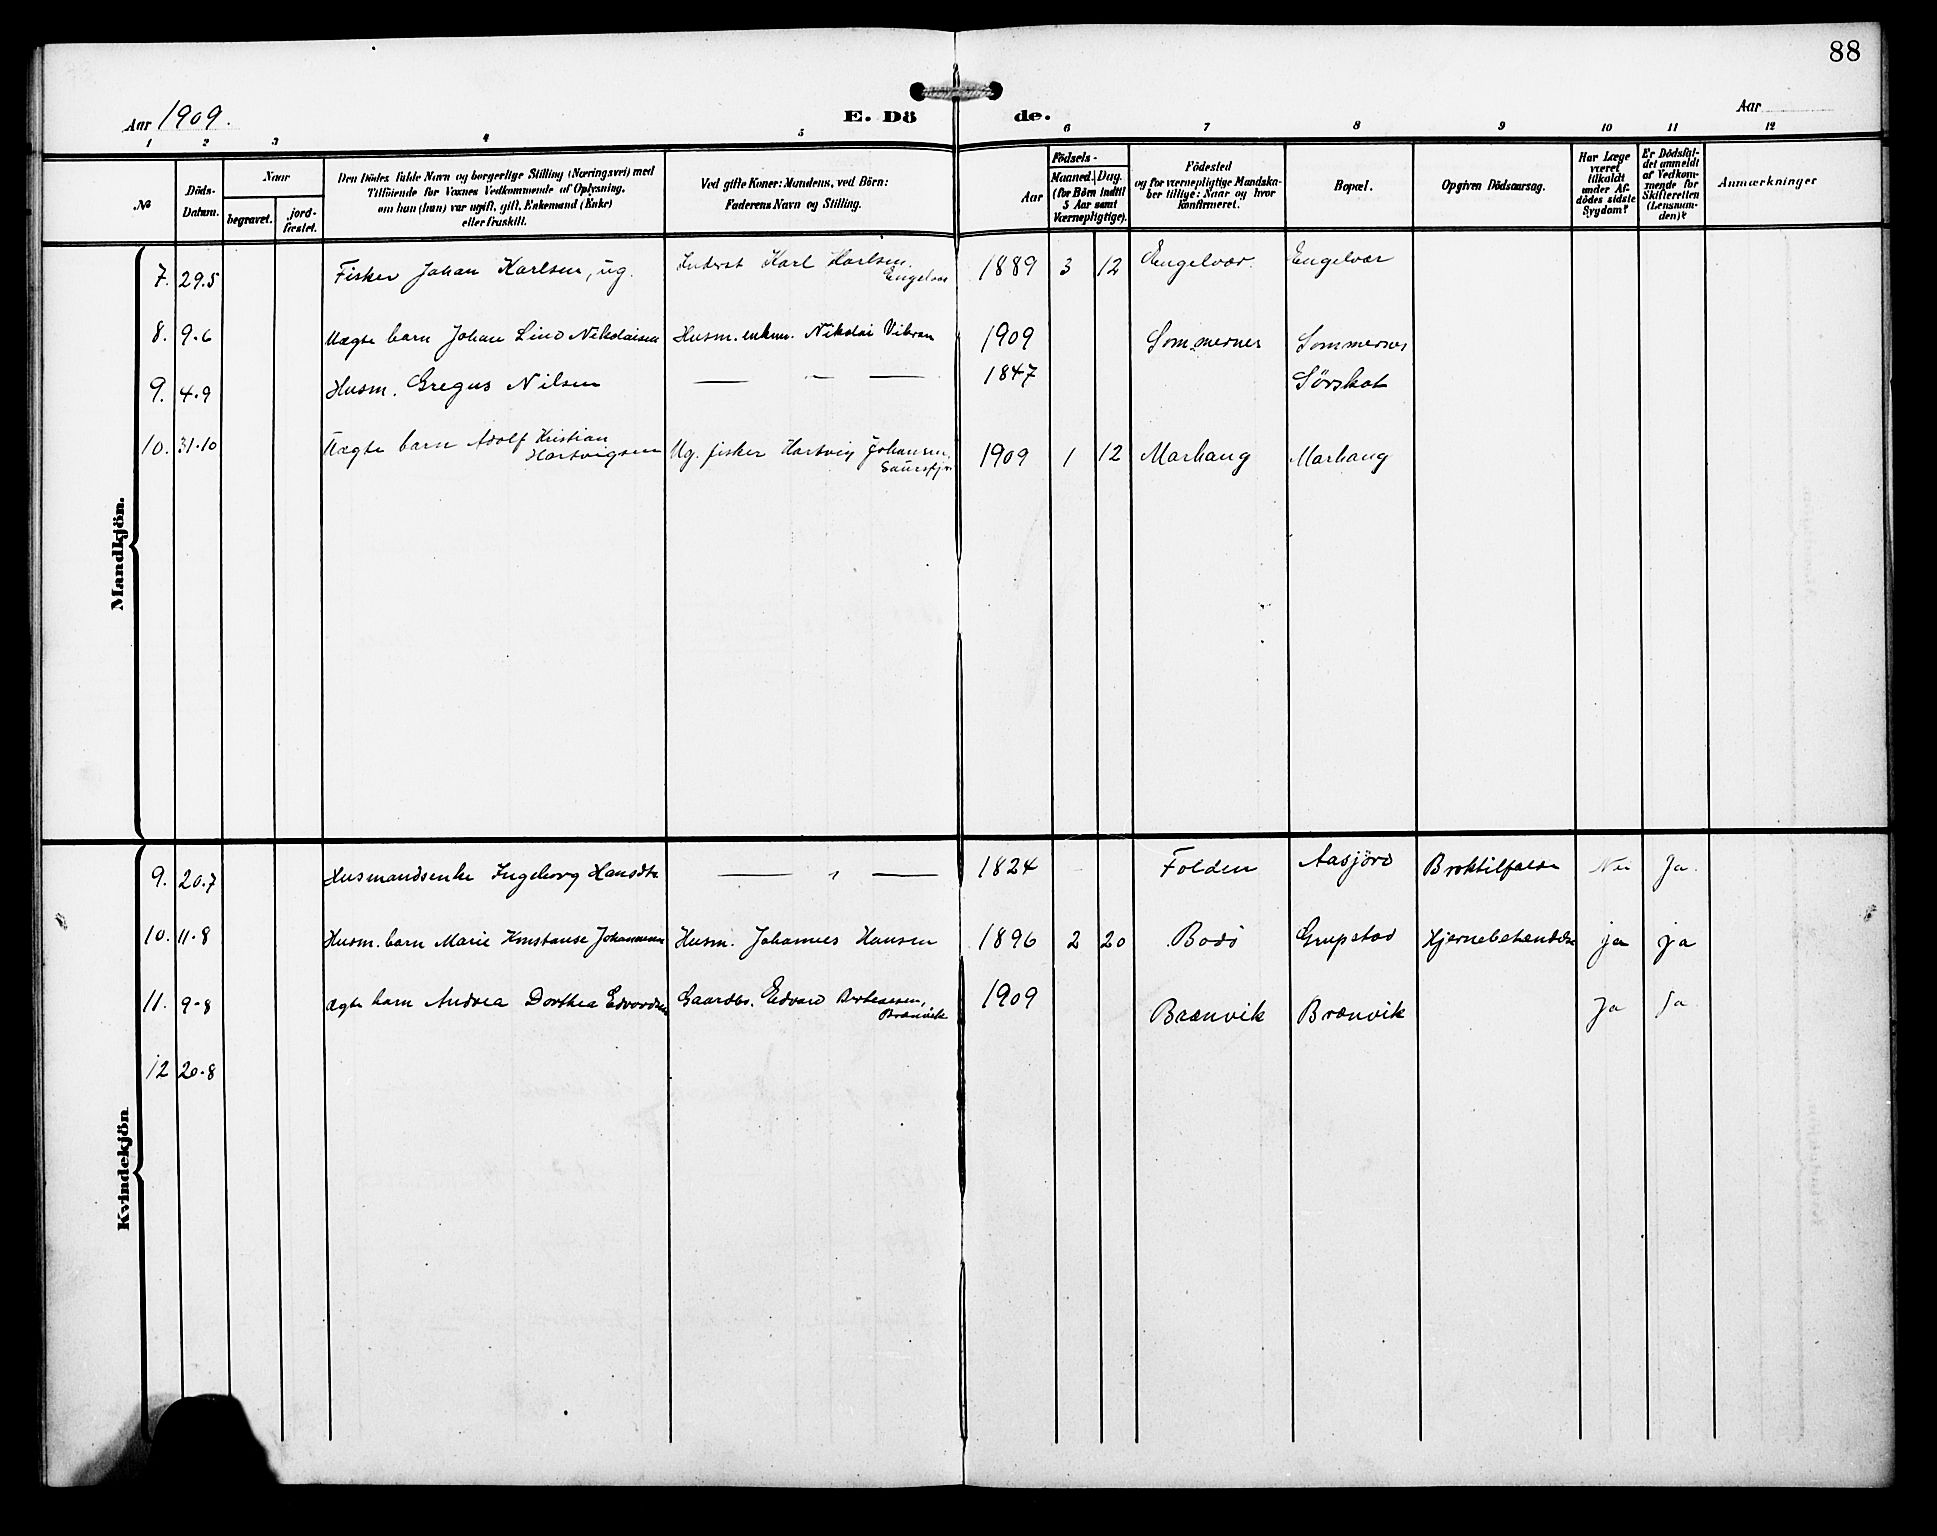 88
Aar 1909.
E. Dö de.
Aar
1 2 3 4 5 6 7 8 9 10 11 12
No
Döds-
Datum.
Naar
begravet.
jord-
fæstet.
Den Dödes fulde Navn og borgerlige Stilling (Næringsvei) med
Tilföiende for Voxnes Vedkommende af Oplysning,
om han (hun) var ugift, gift, Enkemand (Enke)
eller fraskilt.
Ved gifte Koner: Mandens, ved Börn:
Faderens Navn og Stilling.
Födsels-
Aar
Maaned. Dag.
(for Börn indtil
5 Aar samt
Værnepligtige).
Födested
og for værnepligtige Mandska-
ber tillige: Naar og hvor
konfirmeret.
Bopæl.
Opgiven Dödsaarsag.
Har Læge
været
tilkaldt
under Af-
dödes sidste
Sygdom?
Er Dödsfal-
det anmeldt
af Vedkom-
mende for
Skifteretten
(Lensman-
den)?
Anmærkninger
Mandkjön.
7. 29.5 Fisker Johan Karlsen, ug. Inderst Karl Karlsen, Engelvær 1889 3 12 Engelvær. Engelvær
8. 9.6 Uægte barn Johan Lind Nikolaisen Husm. enkem. Nikolai 1909 Sommernes Sommernes
9. 4.9 Husm. Gregus Nilsen — " — 1847 Sørskot
10. 31.10 Uægte barn Adolf Kristian Hartvigsen Ug. fisker Hartvig Johansen, 1909 1 12 Marhaug Marhaug
Kvindekjön.
9. 20.7 Husmandsenke Ingeborg Hansdtr — " — 1824 Folden Aasjörd Broktilfælde Nei Ja.
10. 11.8 Husm. barn Marie Konstanse Johannesen Husm. Johannes Hansen 1896 2 20 Bodö Grupstad Hjernebetændelse ja ja
11. 9-8 ægte barn Andrea Dorthea Edvardsen Gaardbr. Edvard Berteassen, Brænvik 1909 Brænvik Brænvik Ja Ja
12 20.8